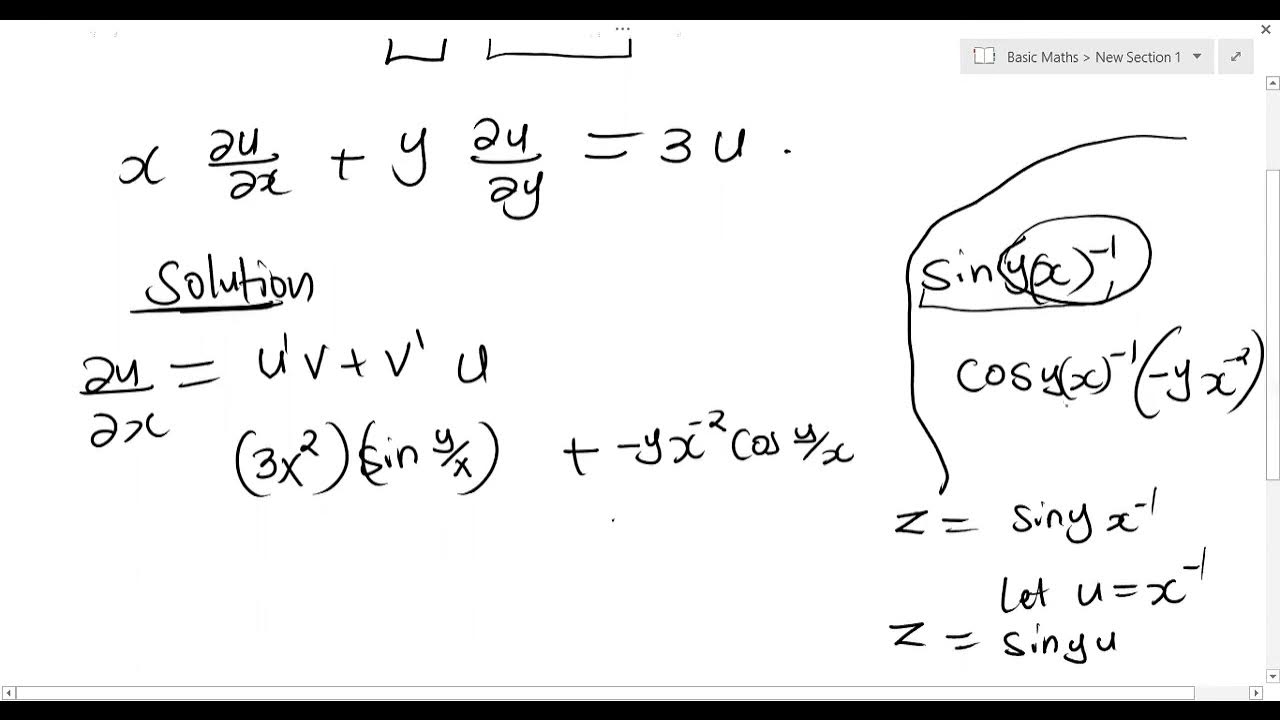 Basic Maths > New Section 1
x ∂u/∂x + y ∂u/∂y = 3u.
Solution
∂u/∂x = u'v + v' u
(3x²)(sin y/x) + -yx⁻² cos y/x
sin(y(x)⁻¹
cosy(x)⁻¹(-yx⁻²)
z = siny x⁻¹
Let u = x⁻¹
z = sinyu